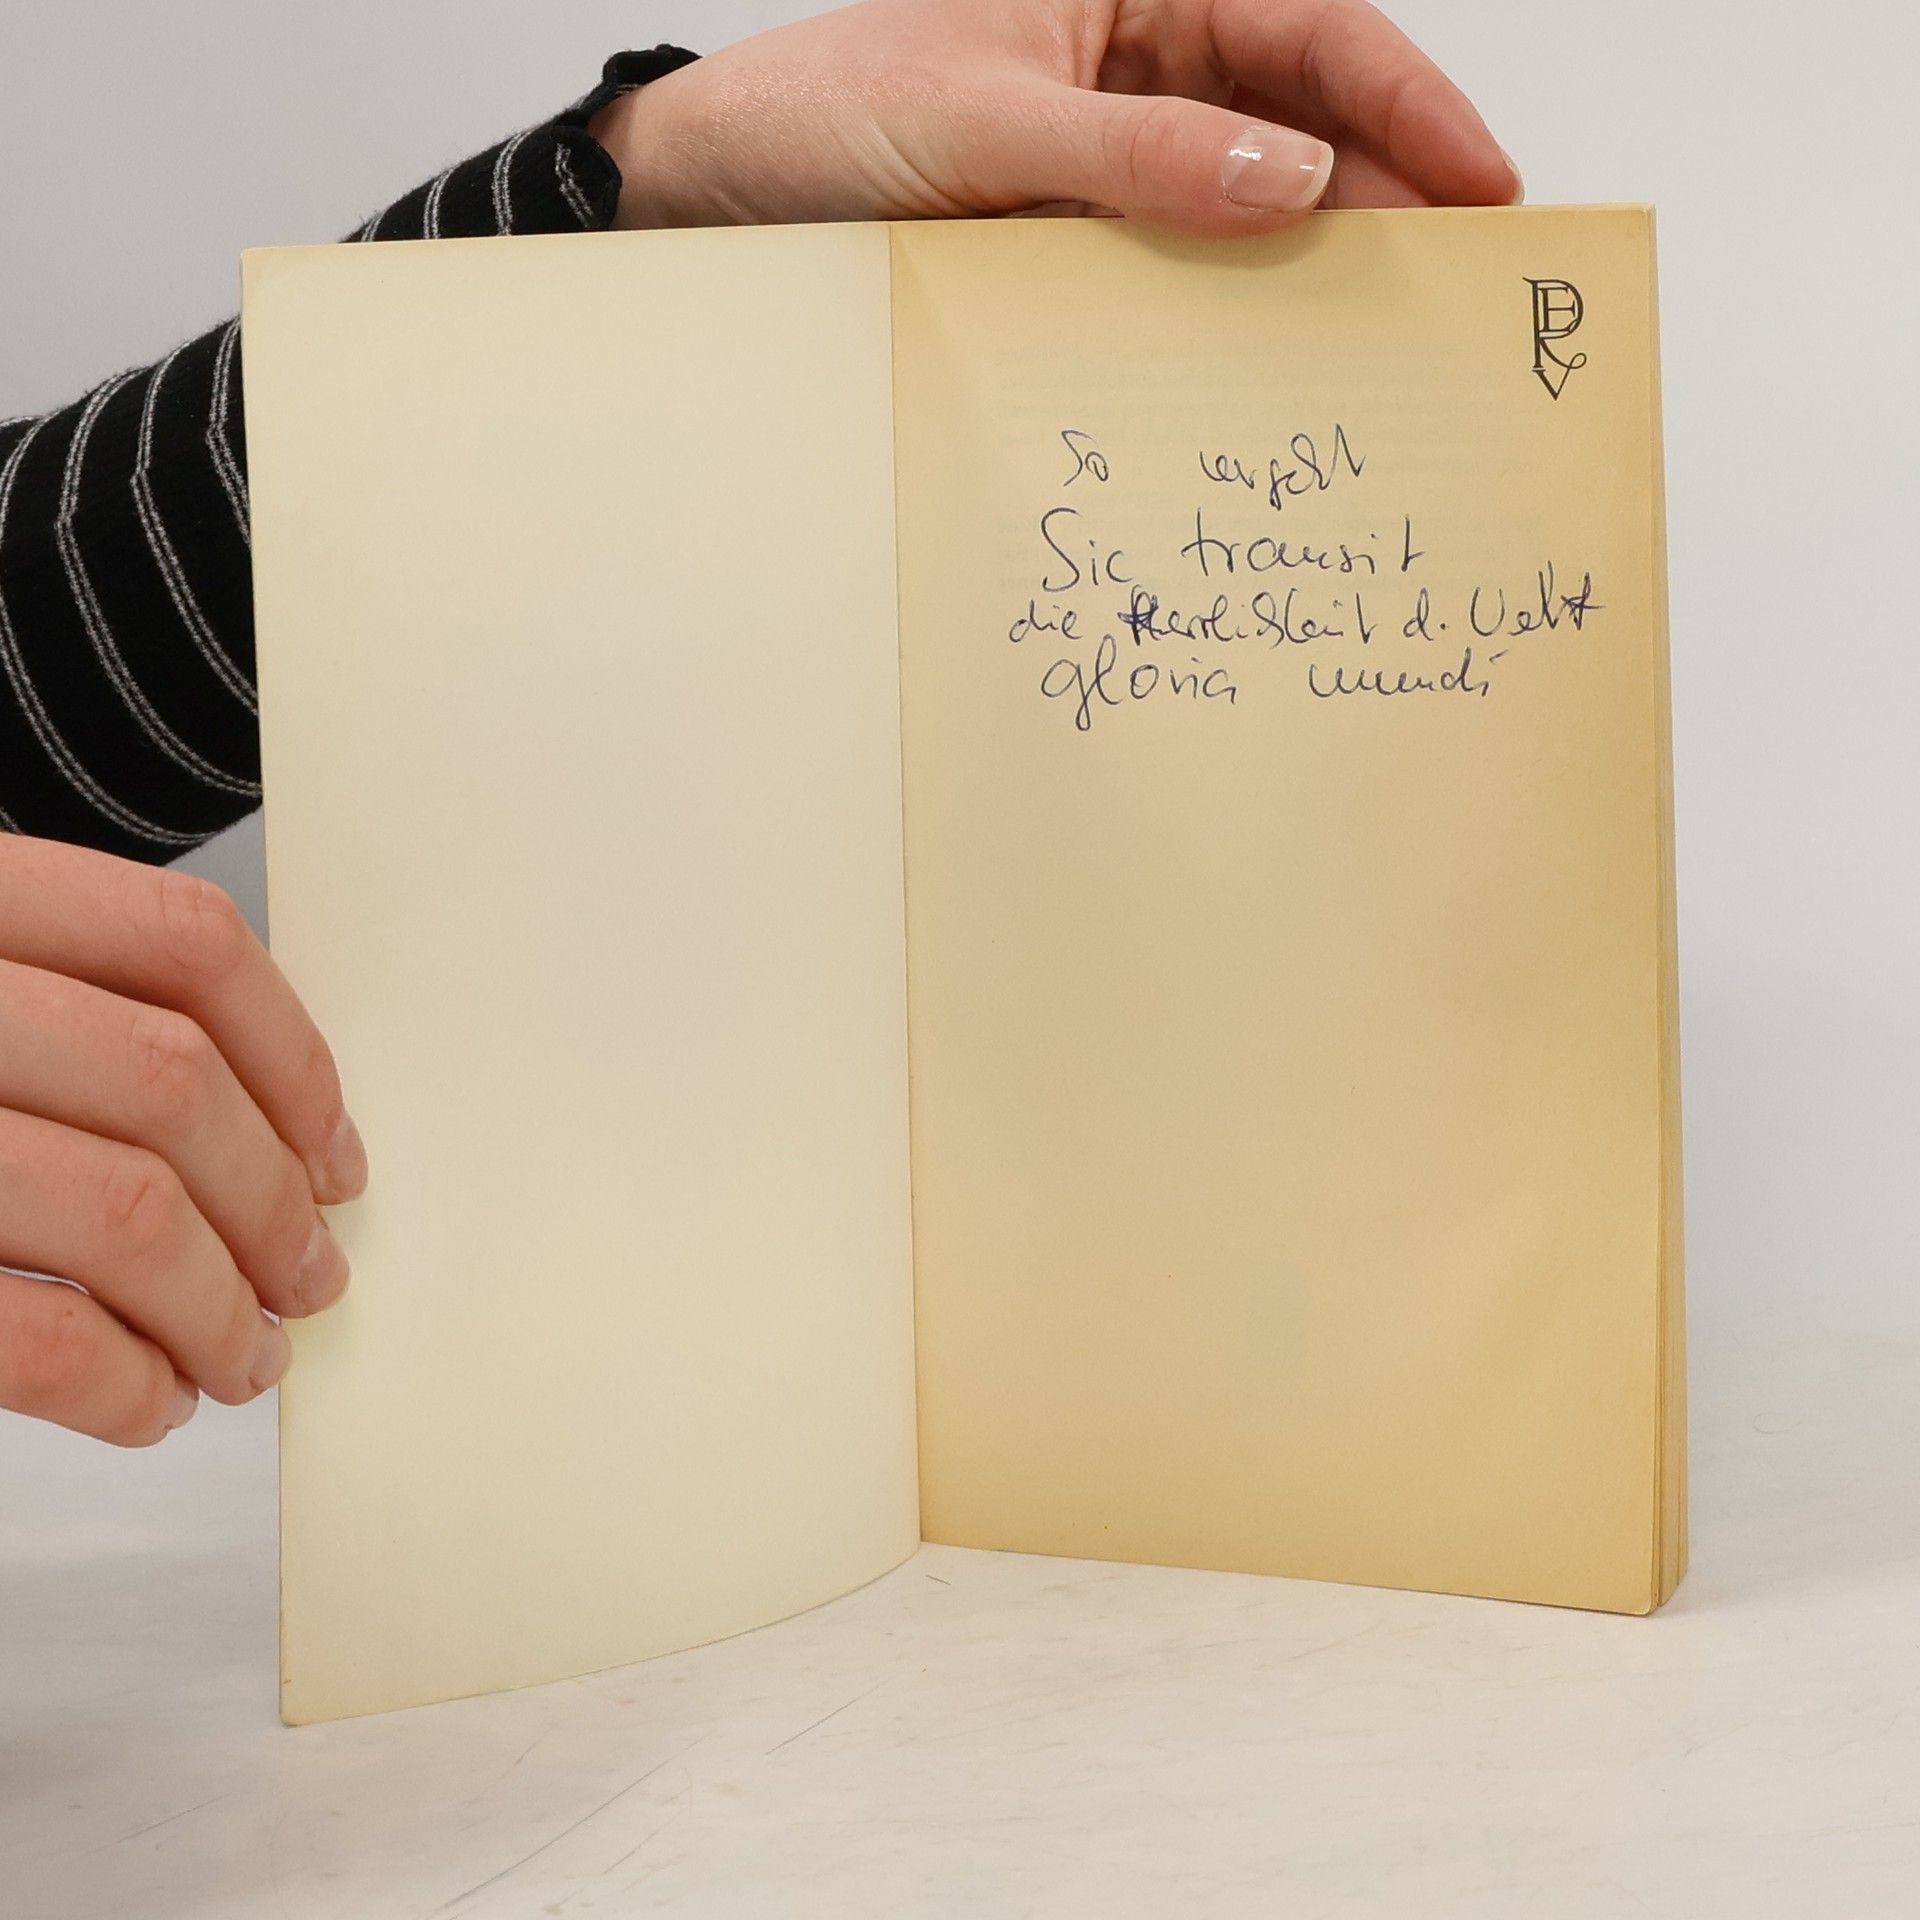 PERV
So vergeht
Sic transit
die Herrlichkeit d. Welt
gloria mundi